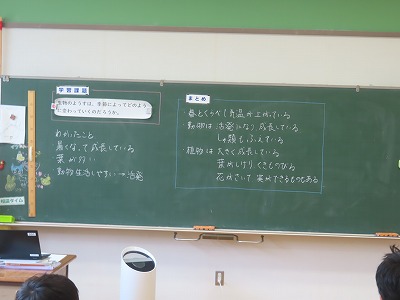 学習課題
生物のようすは、季節によってどのよう
に変わっていくのだろうか。
わかったこと
暑くなって成長している
葉が多い
動物生活しやすい→活発
まとめ
・春とくらべて気温が上がっている
・動物は活発になり成長している
しゅ類もふえている
・植物は大きく成長している
葉がしげり、くきものびる
花がさいて実ができるものもある